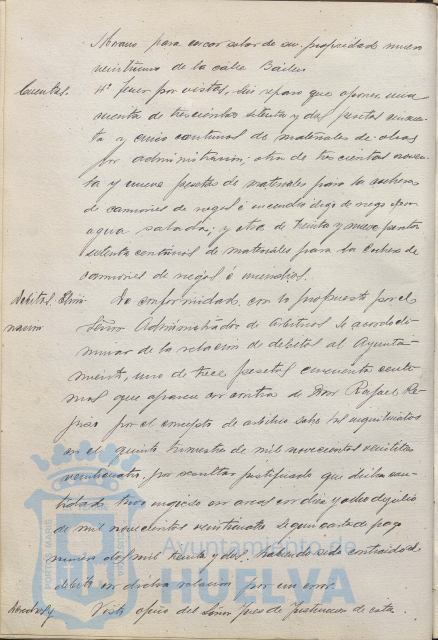 Moreno para cercar solar de su propiedad numero
veintiuno de la calle Bailen
Cuentas. 4º fueron por vistas, sin reparo que oponer, una
cuenta de trescientas setenta y dos pesetas noven-
ta y cinco centimos de materiales de obras
por administracion; otra de trescientas noven-
ta y nueve pesetas de materiales para la cochera
de camiones de riegos é incendios digo de riego con
agua salada; y otra de treinta y nueve pesetas
setenta centimos de materiales para la cochera de
camiones de riegos é incendios.
Débitos. Elimi De conformidad con lo propuesto por el
nacion Señor Administrador de arbitrios se acordó eli-
minar de la relacion de débitos al Ayunta-
miento, uno de trece pesetas cincuenta centi-
mos que aparece en contra de Don Rafael
por el concepto de arbitrio sobre los inquilinatos
en el quinto trimestre de mil novecientos veintitres
veinticuatro, por resultar justificado que dicha can-
tidad tuvo ingreso en arcas en diez y ocho de julio
de mil novecientos veinticuatro segun carta de pago
numero dos mil treinta y dos, habiendo sido contraido el
débito en dicha relacion por un error.
Visto oficio del Señor Juez de Instruccion de esta
PORTUS MARIS
Ayuntamiento de
HUELVA